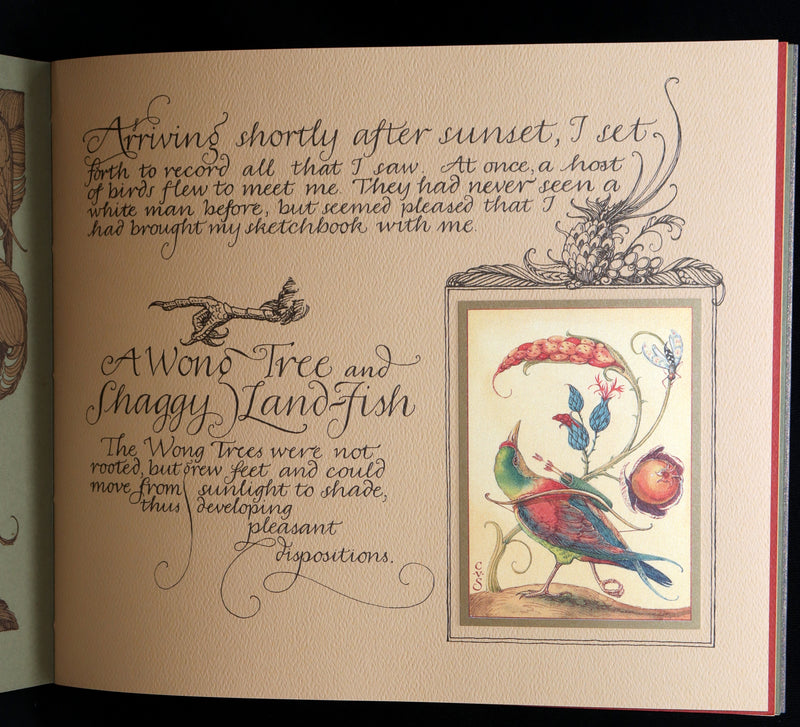 Arriving shortly after sunset, I set
forth to record all that I saw. At once, a host
of birds flew to meet me. They had never seen a
white man before, but seemed pleased that I
had brought my sketchbook with me.
A Wong Tree and
Shaggy Land-Fish
The Wong Trees were not
rooted, but grew feet and could
move from sunlight to shade,
thus developing
pleasant
dispositions.